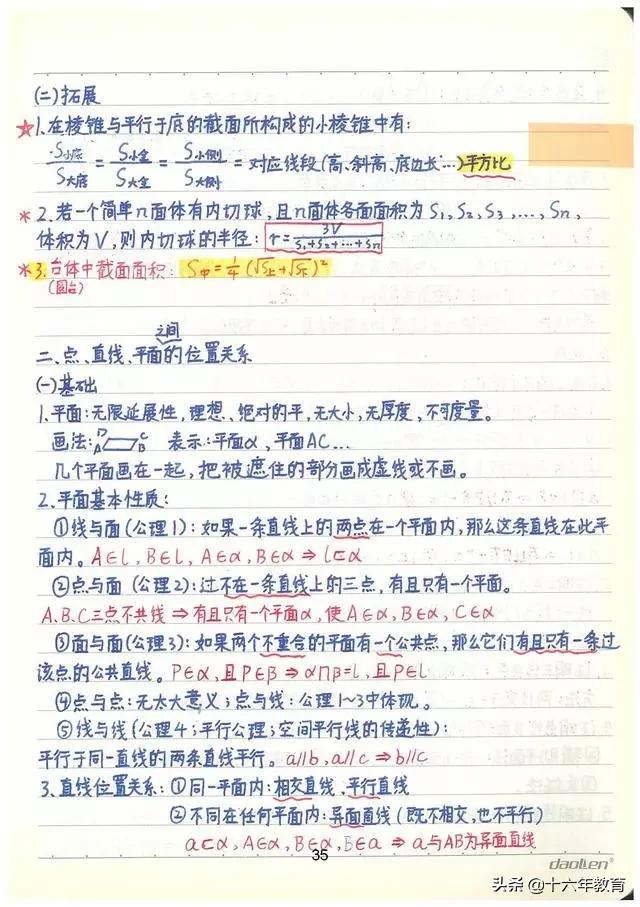 (二)拓展
☆1.在棱锥与平行于底的截面所构成的小棱锥中有:
S小底/S大底 = S小全/S大全 = S小侧/S大侧 = 对应线段(高、斜高、底边长…)平方比
*2.若一个简单n面体有内切球,且n面体各面面积为S₁,S₂,S₃,…,Sn,
体积为V,则内切球的半径: r=3V/(S₁+S₂+…+Sn)
*3.台体中截面面积: S中=1/4(√S上+√S下)²
(圆台)
之间
二、点、直线、平面的位置关系
(一)基础
1.平面:无限延展性,理想、绝对的平,无大小,无厚度,不可度量。
画法: D C A B 表示:平面α,平面AC…
几个平面画在一起,把被遮住的部分画成虚线或不画。
2.平面基本性质:
①线与面(公理1):如果一条直线上的两点在一个平面内,那么这条直线在此平
面内。A∈l,B∈l,A∈α,B∈α⇒l⊂α
②点与面(公理2):过不在一条直线上的三点,有且只有一个平面。
A.B.C三点不共线⇒有且只有一个平面α,使A∈α,B∈α,C∈α
③面与面(公理3):如果两个不重合的平面有一个公共点,那么它们有且只有一条过
该点的公共直线。P∈α,且P∈β⇒α∩β=l,且P∈l
④点与点:无太大意义;点与线:公理1~3中体现。
⑤线与线(公理4;平行公理;空间平行线的传递性):
平行于同一直线的两条直线平行。a//b,a//c⇒b//c
3.直线位置关系:①同一平面内:相交直线、平行直线
②不同在任何平面内:异面直线(既不相交,也不平行)
a⊂α,A∈α,B∈α,B∈a⇒a与AB为异面直线
35
daolen®
头条@十六年教育